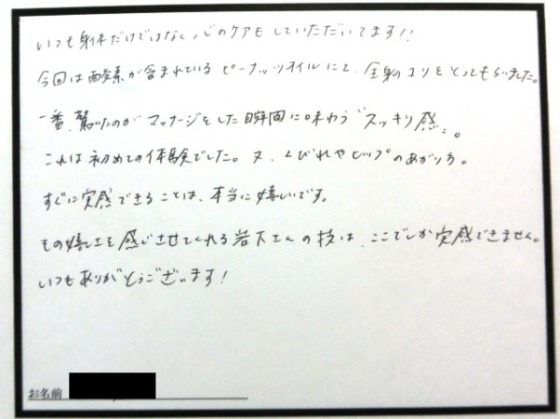 いつも身体だけではなく、心のケアもしていただいてます!!
今回は酵素が含まれているピーナッツオイルにて、全身のコリをとってもらいました。
一番、驚いたのがマッサージをした瞬間に味わう"スッキリ感"。
これは初めての体験でした。又、くびれやヒップのあがり方。
すぐに実感できることは、本当に嬉しいです。
その嬉しさを感じさせてくれる岩下さんの技は、ここでしか実感できません。
いつもありがとうございます!
お名前